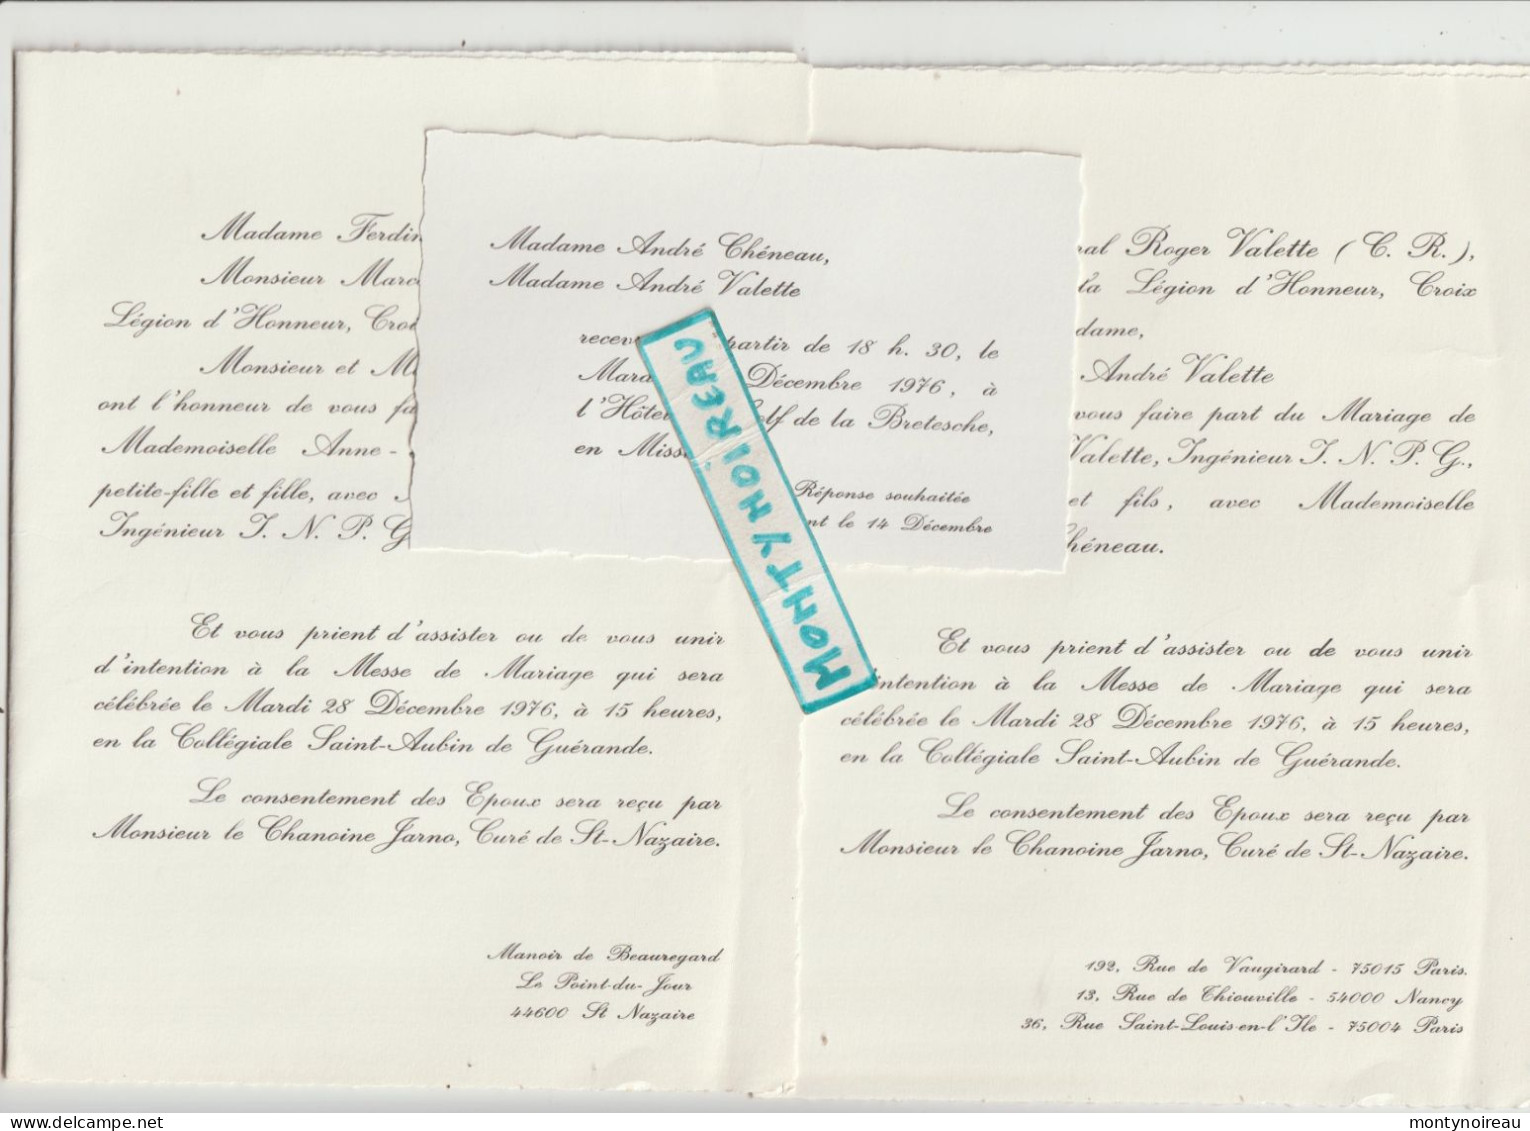 Madame Ferdin
Monsieur Marc
Légion d'Honneur, Croi
Monsieur et M
ont l'honneur de vous fa
Mademoiselle Anne-
petite-fille et fille, avec
Ingénieur I. N. P. G
Et vous prient d'assister ou de vous unir
d'intention à la Messe de Mariage qui sera
célébrée le Mardi 28 Décembre 1976, à 15 heures,
en la Collégiale Saint-Aubin de Guérande.
Le consentement des Epoux sera reçu par
Monsieur le Chanoine Jarno, Curé de St-Nazaire.
Manoir de Beauregard
Le Point-du-Jour
44600 St Nazaire
Madame André Chéneau,
Madame André Valette
recev partir de 18 h. 30, le
Mar Décembre 1976, à
l'Hôte olf de la Bretesche,
en Miss
Réponse souhaitée
nt le 14 Décembre
MONTYNOIREAU
ral Roger Valette (C. R.),
la Légion d'Honneur, Croix
dame,
André Valette
vous faire part du Mariage de
Valette, Ingénieur I. N. P. G.,
et fils, avec Mademoiselle
héneau.
Et vous prient d'assister ou de vous unir
intention à la Messe de Mariage qui sera
célébrée le Mardi 28 Décembre 1976, à 15 heures,
en la Collégiale Saint-Aubin de Guérande.
Le consentement des Epoux sera reçu par
Monsieur le Chanoine Jarno, Curé de St-Nazaire.
192, Rue de Vaugirard - 75015 Paris.
13, Rue de Thionville - 54000 Nancy
36, Rue Saint-Louis-en-l'Ile - 75004 Paris
montynoireau